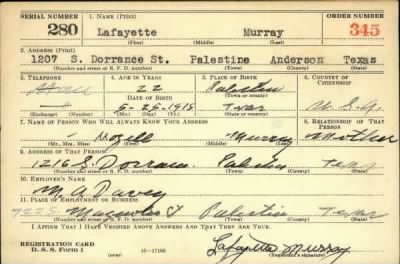 SERIAL NUMBER 1. NAME (Print) ORDER NUMBER
280 Lafayette Murray 345
(First) (Middle) (Last)
2. ADDRESS (Print)
1207 S. Dorrance St. Palestine Anderson Texas
(Number and street or R. F. D. number) (Town) (County) (State)
3. TELEPHONE 4. AGE IN YEARS 5. PLACE OF BIRTH 6. COUNTRY OF CITIZENSHIP
22 Palestine
DATE OF BIRTH (Town or county)
5-25-1918 Texas U.S.A.
(Exchange) (Number) (Mo.) (Day) (Yr.) (State or country)
7. NAME OF PERSON WHO WILL ALWAYS KNOW YOUR ADDRESS 8. RELATIONSHIP OF THAT PERSON
Mozell Murray Mother
(Mr., Mrs., Miss) (First) (Middle) (Last)
9. ADDRESS OF THAT PERSON
1216 S. Dorrance Palestine Texas
(Number and street or R. F. D. number) (Town) (County) (State)
10. EMPLOYER'S NAME
M A Davey
11. PLACE OF EMPLOYMENT OR BUSINESS
Magnolia St Palestine Texas
(Number and street or R. F. D. number) (Town) (County) (State)
I AFFIRM THAT I HAVE VERIFIED ABOVE ANSWERS AND THAT THEY ARE TRUE.
REGISTRATION CARD
D. S. S. FORM 1 (over) 16—17105 Lafayette Murray
(Registrant's signature)